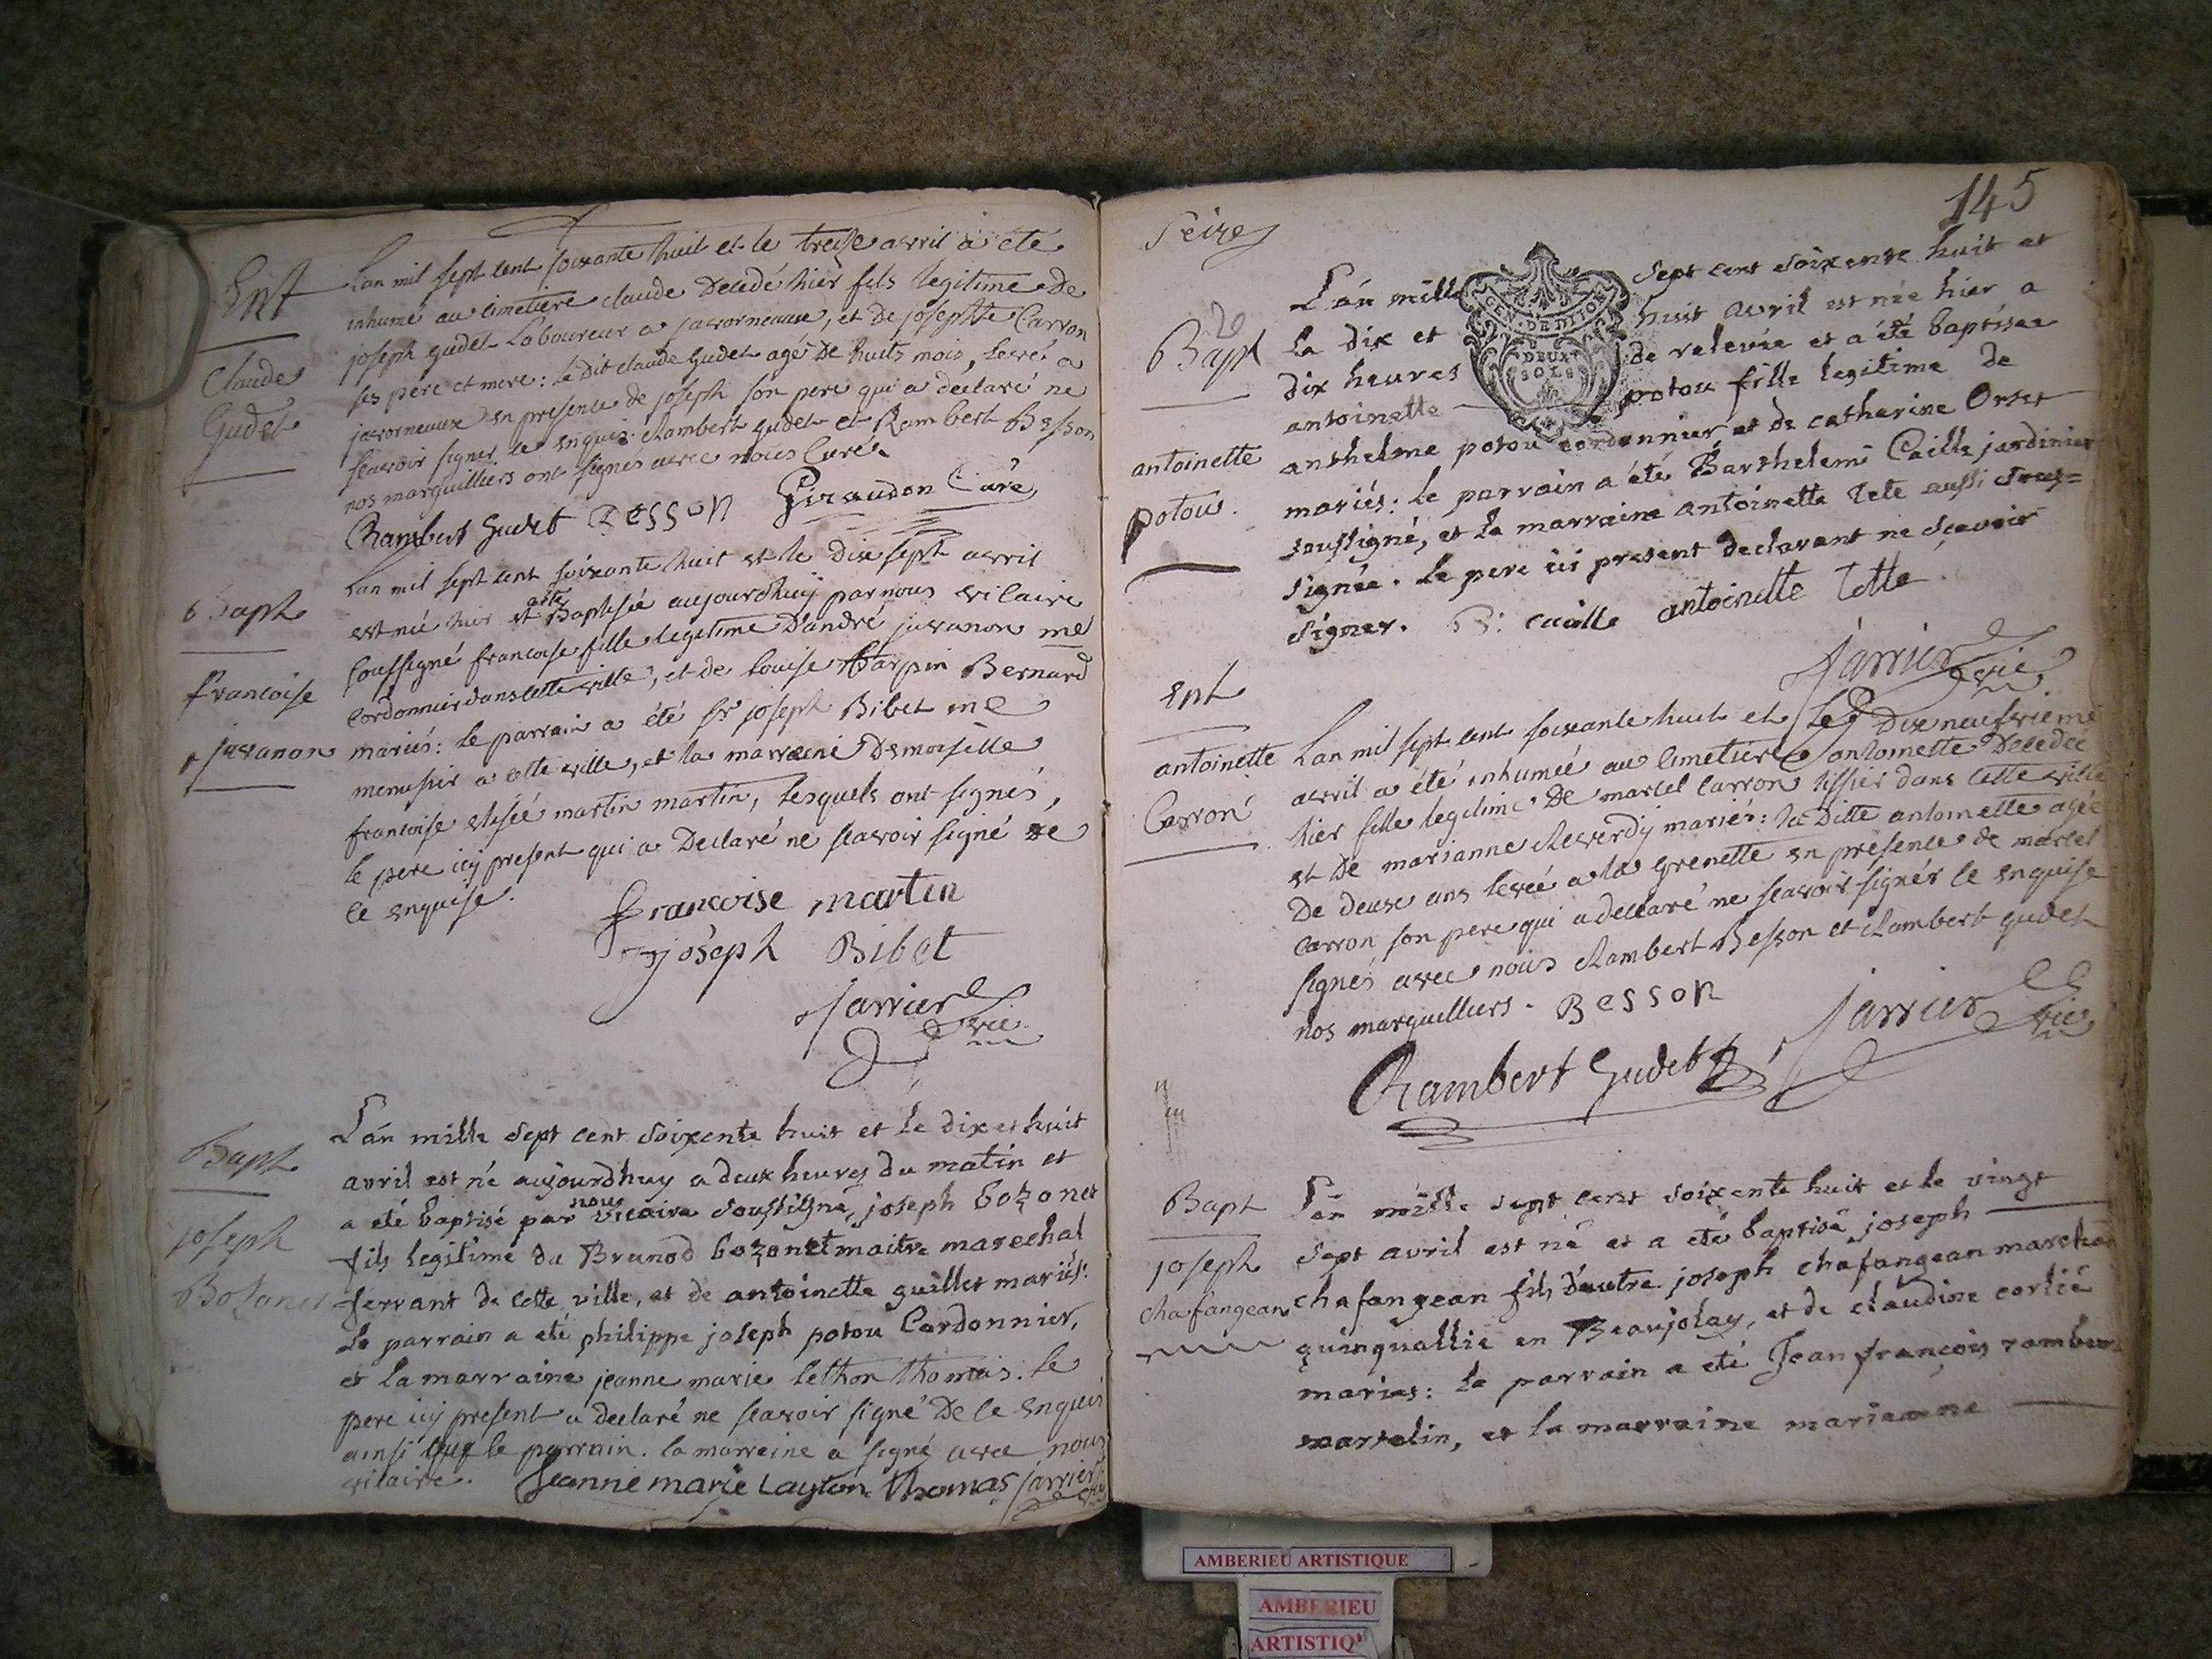 Ent
Claude
Gudet
Lan mil sept cent soixante huit et le treize avril a été
inhumé au cimetiere claude decedé hier fils legitime de
joseph gudet Laboureur a javorneaux, et de josephte Carron
ses pere et mere: le dit claude Gudet agé de huits mois, levé a
javorneaux en presence de joseph son pere qui a declaré ne
sçavoir signer de ce enquis. Rambert gudet et Rambert Besson
nos marguilliers ont signés avec nous Curé.
Rambert Gudet Besson Giraudon Curé
Bapt
francoise
javanon
Lan mil sept cent soixante huit et le dix sept avril
est née hier et a été Baptisée aujourdhuy par nous vicaire
soussigné francoise fille legitime D'andré javanon me
Cordonnier dans cette ville, et de louise Harpin Bernard
mariés: le parrain a été Sr joseph Bibet me
menusier a cette ville, et la marraine Demoiselle
francoise martin martin, lesquels ont signés,
le pere icy present qui a Declaré ne scavoir signé de
ce enquise.
francoise martin
joseph Bibet
jarrier vic
Bapt
joseph
Bozonet
L'an mille sept cent soixente huit et le dix et huit
avril est né aujourdhuy a deux heures du matin et
a eté baptisé par nous vicaire soussigné, joseph bozonet
fils legitime du Brunod bozonet maitre marechal
ferrant de cette ville, et de antoinette guillet mariés:
le parrain a eté philippe joseph potou Cordonnier,
et la marraine jeanne marie lethon thomas. le
pere icy present a declaré ne scavoir signé De ce enquis
ainsi que le parrain. la marraine a signé avec nous
vicaire. Jeanne marie Layton Thomas jarrier vic
145
Seize
GEN. DE DIJON
DEUX
SOLS
20
Bapt
antoinette
potou.
L'an mille sept cent soixente huit et
le dix et huit avril est née hier a
dix heures de relevée et a été baptisée
antoinette potou fille legitime de
anthelme potou cordonnier et de catherine Orset
mariés: le parrain a été Barthelemi Caille jardinier
soussigné, et la marraine antoinette tete aussi sous=
signée. le pere ici present declarant ne sçavoir
signer. B: caille antoinette tette
jarrier vic
ent
antoinette
Carron
Lan mil sept cent soixante huit et Le Dix neufvieme
avril a été inhumée au Cimetiere antoinette Decedée
hier fille legitime De marcel Carron tissier dans cette ville
et De marianne Reverdy mariés: la Ditte antoinette agée
De deux ans levée a la grenette en presence de marcel
Carron son pere qui a declaré ne scavoir signér ce enquise
signés avec nous Rambert Besson et Rambert gudet
nos marguilliers. Besson
Rambert Gudet jarrier vic
Bapt
joseph
chafangean
L'an mille sept cent soixente huit et le vingt
sept avril est né et a eté baptisé joseph
chafangean fils d'autre joseph chafangean marchan
quinquallié en Beaujolay, et de claudine cortié
maries: le parrain a eté Jean françois rambert
martelin, et la marraine marieanne
AMBERIEU ARTISTIQUE
AMBERIEU
ARTISTIQ